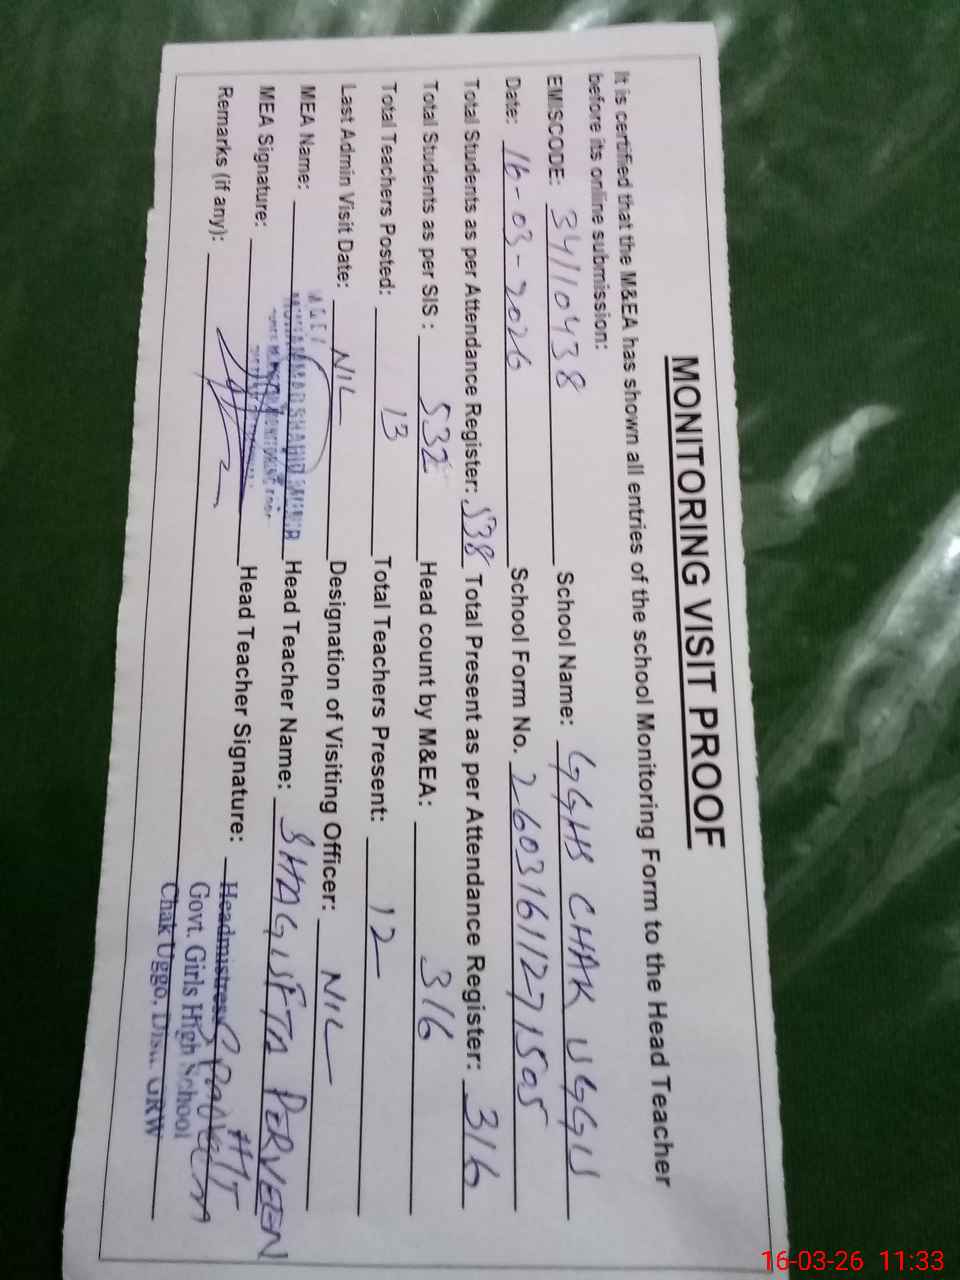 MONITORING VISIT PROOF
It is certified that the M&EA has shown all entries of the school Monitoring Form to the Head Teacher
before its online submission:
EMISCODE: 34110438 School Name: GGHS CHAK UGGU
Date: 16-03-2026 School Form No. 26031611271505
Total Students as per Attendance Register: 538 Total Present as per Attendance Register: 316
Total Students as per SIS : 532 Head count by M&EA: 316
Total Teachers Posted: 13 Total Teachers Present: 12
Last Admin Visit Date: NIL Designation of Visiting Officer: NIL
MEA Name: MUHAMMAD SHAHID Head Teacher Name: SHAGUFTA PERVEEN
MEA Signature: Head Teacher Signature:
HT
Remarks (if any):
Headmistress
Govt. Girls High School
Chak Uggo, Distt. GRW
16-03-26 11:33